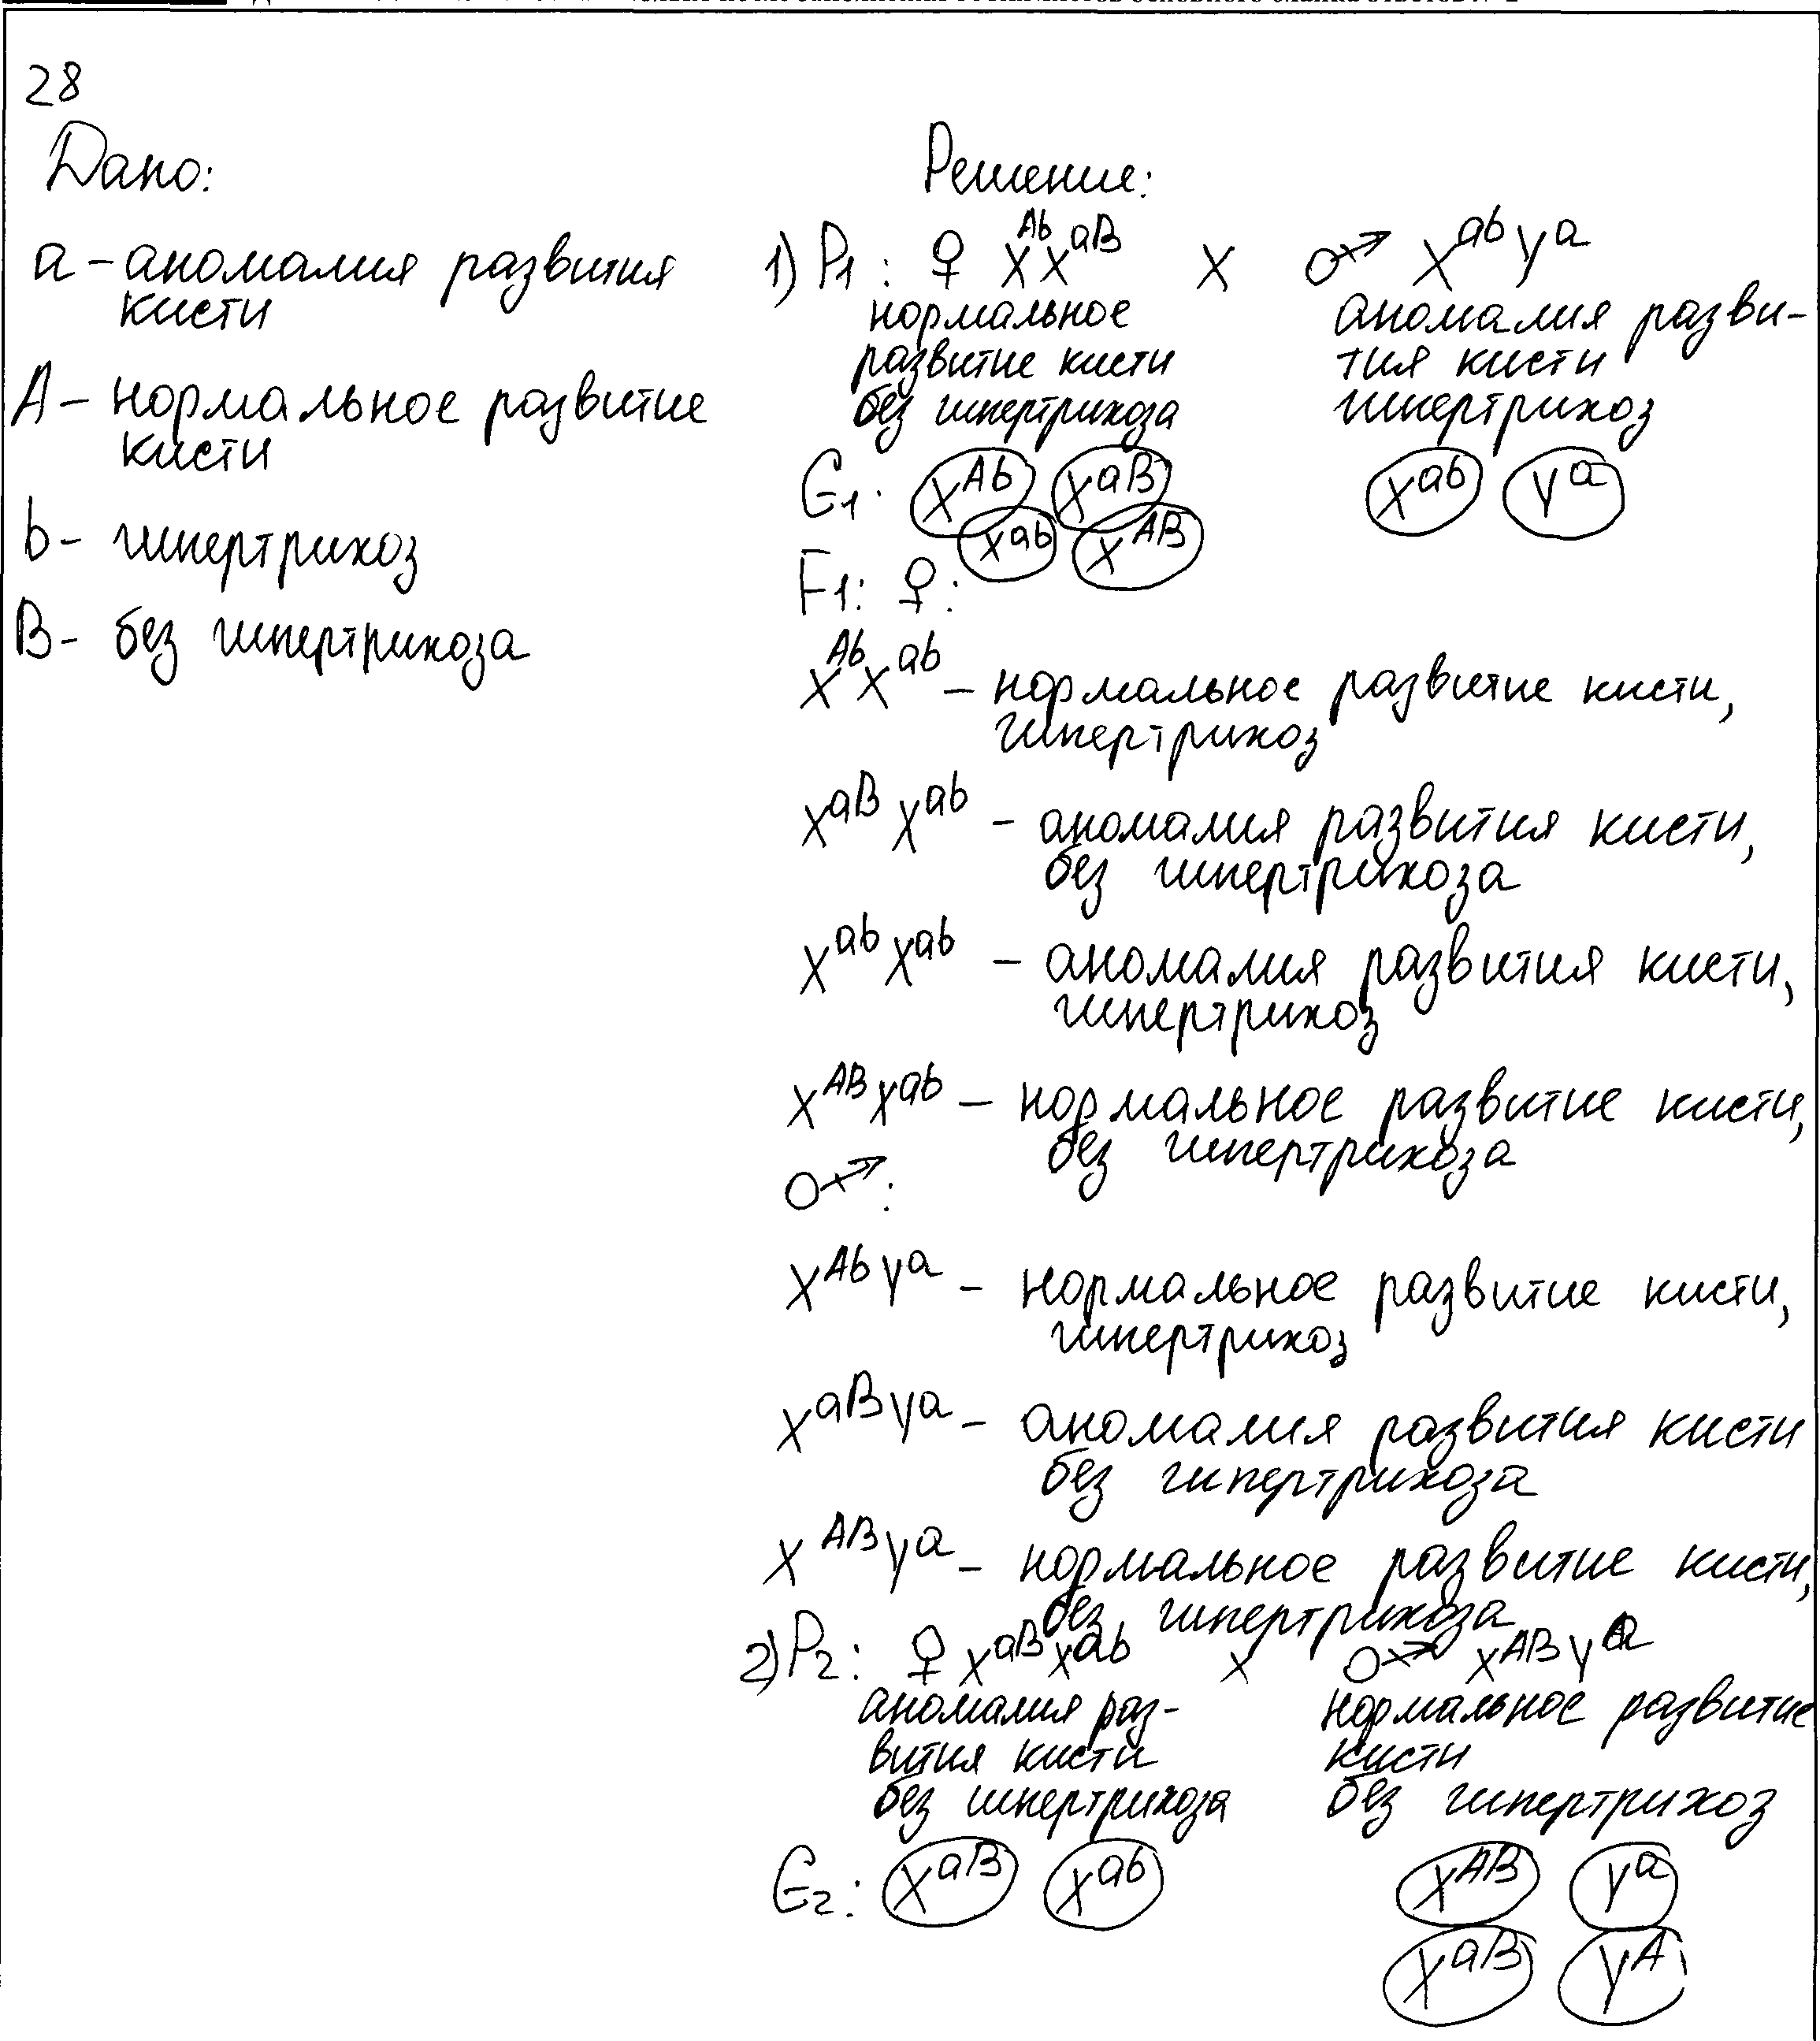 28
Дано:
a - аномалия развития
кисти
A - нормальное развитие
кисти
b - гипертрихоз
B - без гипертрихоза
Решение:
1) P1: ♀ X^Ab X^aB x ♂ X^ab Y^a
нормальное аномалия разви-
развитие кисти тия кисти
без гипертрихоза гипертрихоз
G1: X^Ab X^aB X^ab Y^a
X^ab X^AB
F1: ♀:
X^Ab X^ab - нормальное развитие кисти,
гипертрихоз
X^aB X^ab - аномалия развития кисти,
без гипертрихоза
X^ab X^ab - аномалия развития кисти,
гипертрихоз
X^AB X^ab - нормальное развитие кисти,
без гипертрихоза
♂:
X^Ab Y^a - нормальное развитие кисти,
гипертрихоз
X^aB Y^a - аномалия развития кисти
без гипертрихоза
X^AB Y^a - нормальное развитие кисти,
без гипертрихоза
2) P2: ♀ X^aB X^ab x ♂ X^AB Y^a
аномалия раз- нормальное развитие
вития кисти кисти
без гипертрихоза без гипертрихоз
G2: X^aB X^ab X^AB Y^a
X^aB Y^A